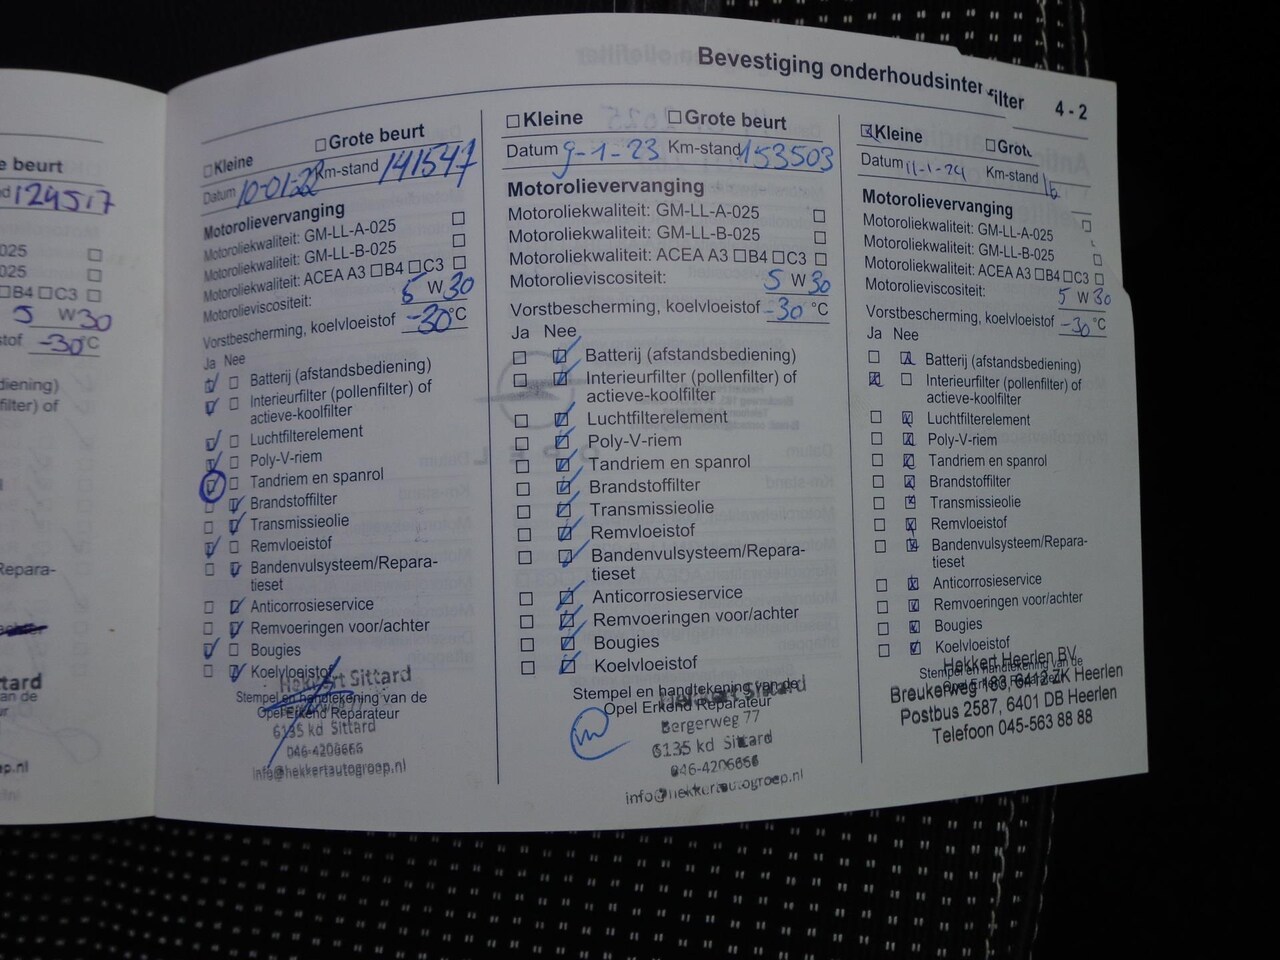 Bevestiging onderhoudsinter
filter
4 - 2
e beurt
124517
025
025
B4 C3
5 W30
stof -30°C
diening)
filter) of
Repara-
ttard
an de
ur
ep.nl
Kleine Grote beurt
Datum 10-01-22 Km-stand 141547
Motorolievervanging
Motoroliekwaliteit: GM-LL-A-025
Motoroliekwaliteit: GM-LL-B-025
Motoroliekwaliteit: ACEA A3 B4 C3
Motorolieviscositeit: 5 W30
Vorstbescherming, koelvloeistof -30°C
Ja Nee
Batterij (afstandsbediening)
Interieurfilter (pollenfilter) of
actieve-koolfilter
Luchtfilterelement
Poly-V-riem
Tandriem en spanrol
Brandstoffilter
Transmissieolie
Remvloeistof
Bandenvulsysteem/Repara-
tieset
Anticorrosieservice
Remvoeringen voor/achter
Bougies
Koelvloeistof
Hekkert Sittard
Stempel en handtekening van de
Opel Erkend Reparateur
6135 kd Sittard
046-4206666
info@hekkertautogroep.nl
Kleine Grote beurt
Datum 9-1-23 Km-stand 153503
Motorolievervanging
Motoroliekwaliteit: GM-LL-A-025
Motoroliekwaliteit: GM-LL-B-025
Motoroliekwaliteit: ACEA A3 B4 C3
Motorolieviscositeit: 5 W30
Vorstbescherming, koelvloeistof -30 °C
Ja Nee
Batterij (afstandsbediening)
Interieurfilter (pollenfilter) of
actieve-koolfilter
Luchtfilterelement
Poly-V-riem
Tandriem en spanrol
Brandstoffilter
Transmissieolie
Remvloeistof
Bandenvulsysteem/Repara-
tieset
Anticorrosieservice
Remvoeringen voor/achter
Bougies
Koelvloeistof
Stempel en handtekening van de
Hekkert Sittard
Opel Erkend Reparateur
Bergerweg 77
6135 kd Sittard
046-4206666
info@hekkertautogroep.nl
Kleine Grot
Datum 11-1-24 Km-stand 16
Motorolievervanging
Motoroliekwaliteit: GM-LL-A-025
Motoroliekwaliteit: GM-LL-B-025
Motoroliekwaliteit: ACEA A3 B4 C3
Motorolieviscositeit: 5 W30
Vorstbescherming, koelvloeistof -30°C
Ja Nee
Batterij (afstandsbediening)
Interieurfilter (pollenfilter) of
actieve-koolfilter
Luchtfilterelement
Poly-V-riem
Tandriem en spanrol
Brandstoffilter
Transmissieolie
Remvloeistof
Bandenvulsysteem/Repara-
tieset
Anticorrosieservice
Remvoeringen voor/achter
Bougies
Koelvloeistof
Stempel en handtekening van de
Opel Erkend Reparateur
Hekkert Heerlen BV
Breukerweg 183, 6412 ZK Heerlen
Postbus 2587, 6401 DB Heerlen
Telefoon 045-563 88 88